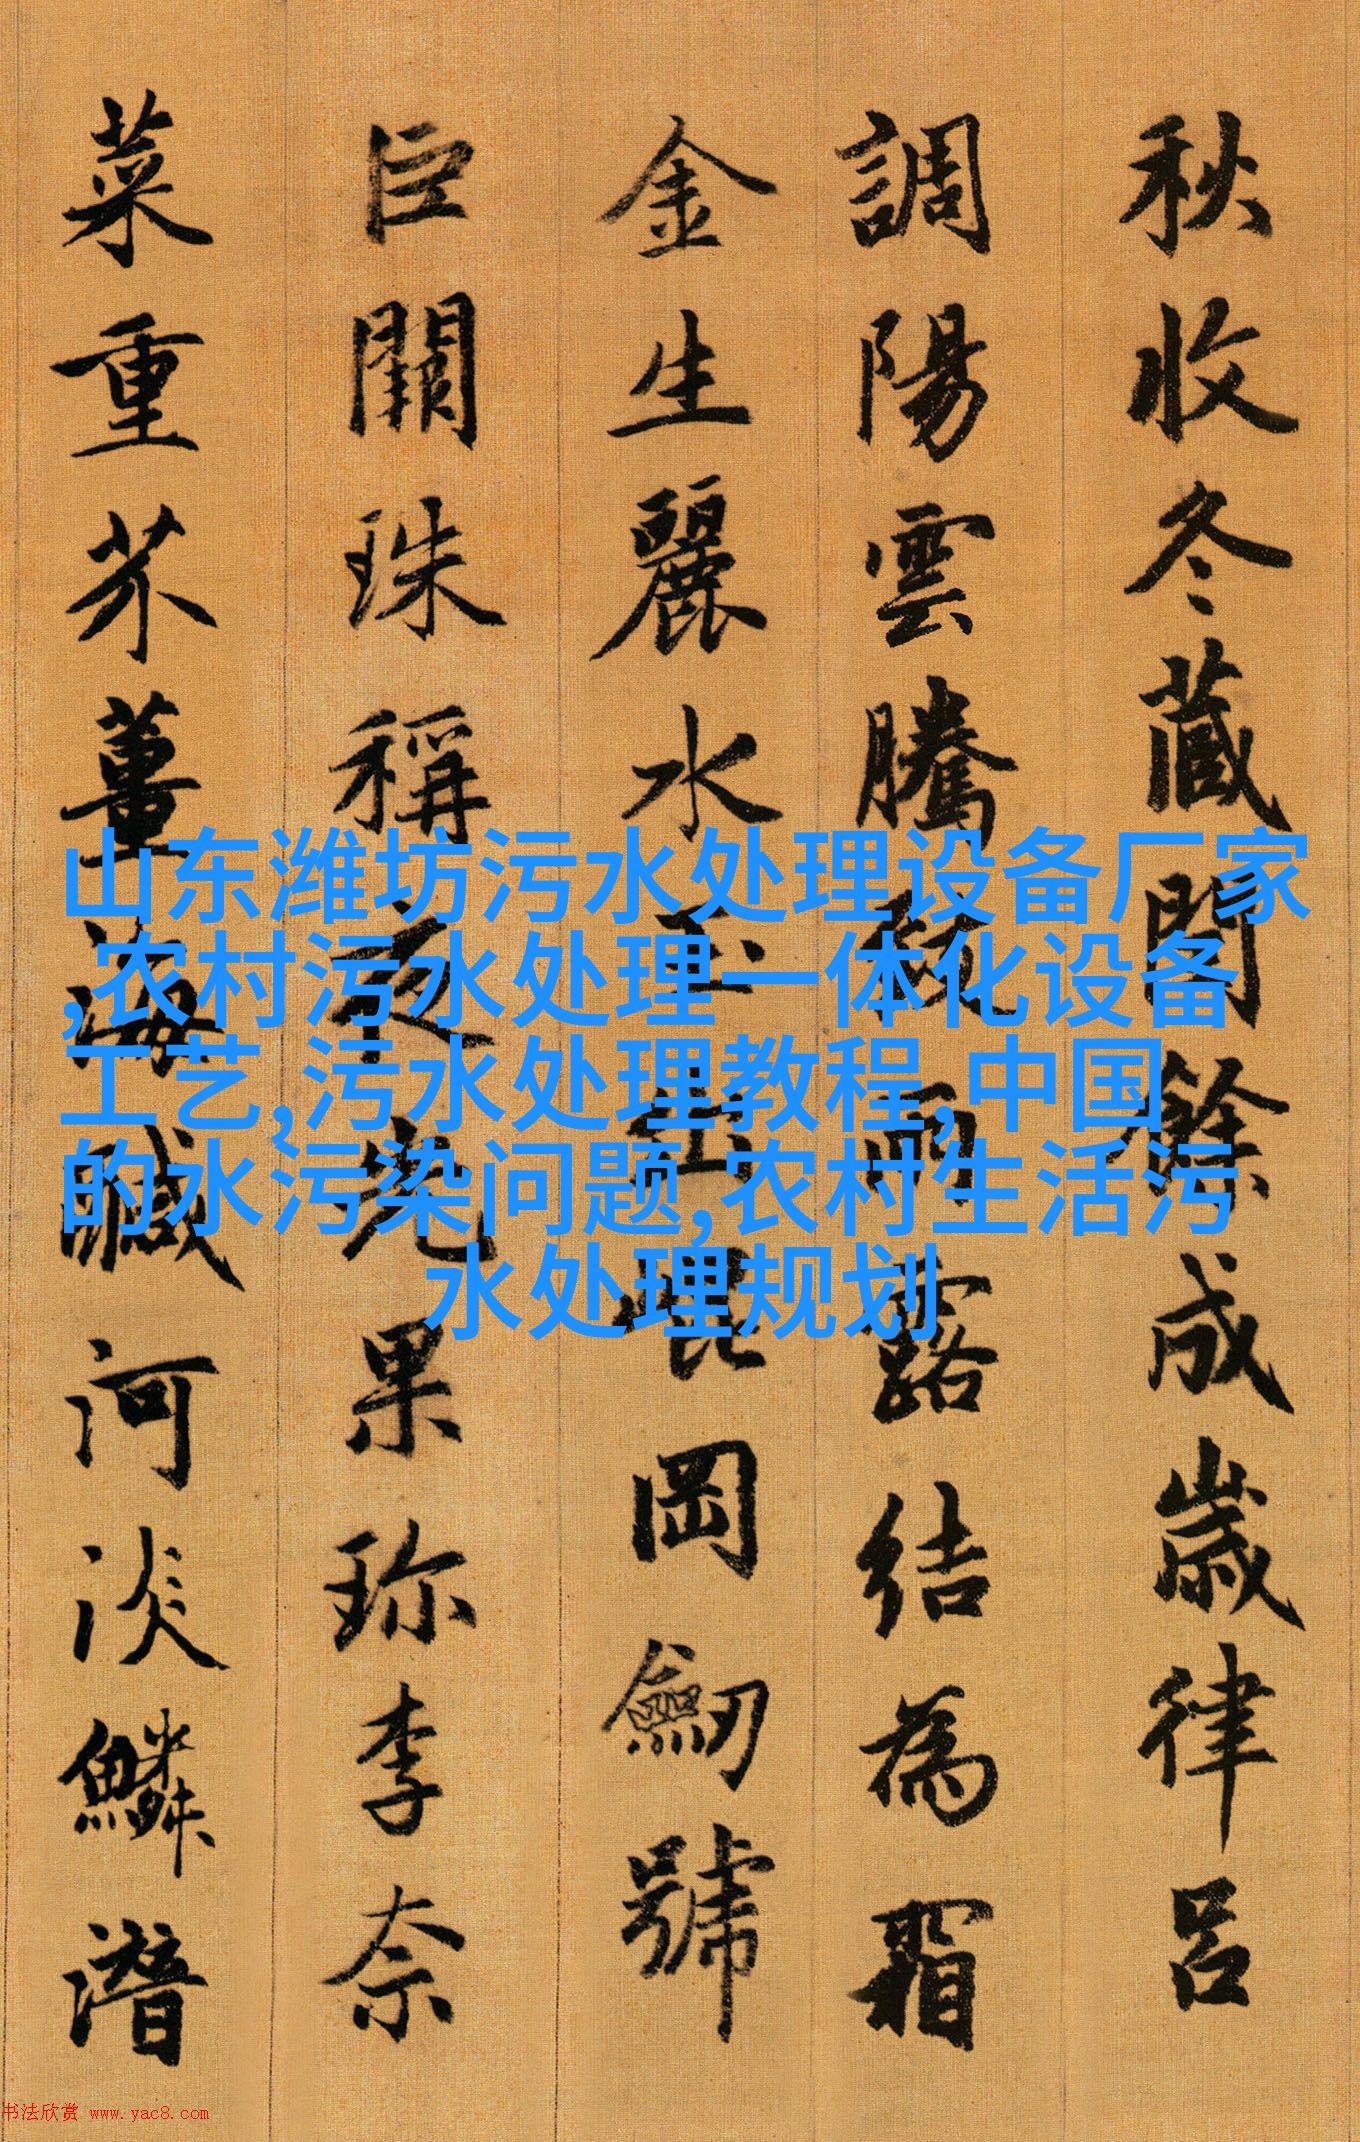 秋收冬藏閏餘成歲律呂
調陽雲騰致雨露結為霜
金生麗水玉出崐岡劒號
巨闕珠稱夜光果珎李奈
菜重芥薑海醎河淡鱗潛
山东潍坊污水处理设备厂家
,农村污水处理一体化设备
工艺,污水处理教程,中国
的水污染问题,农村生活污
水处理规划
书法欣赏 www.yac8.com